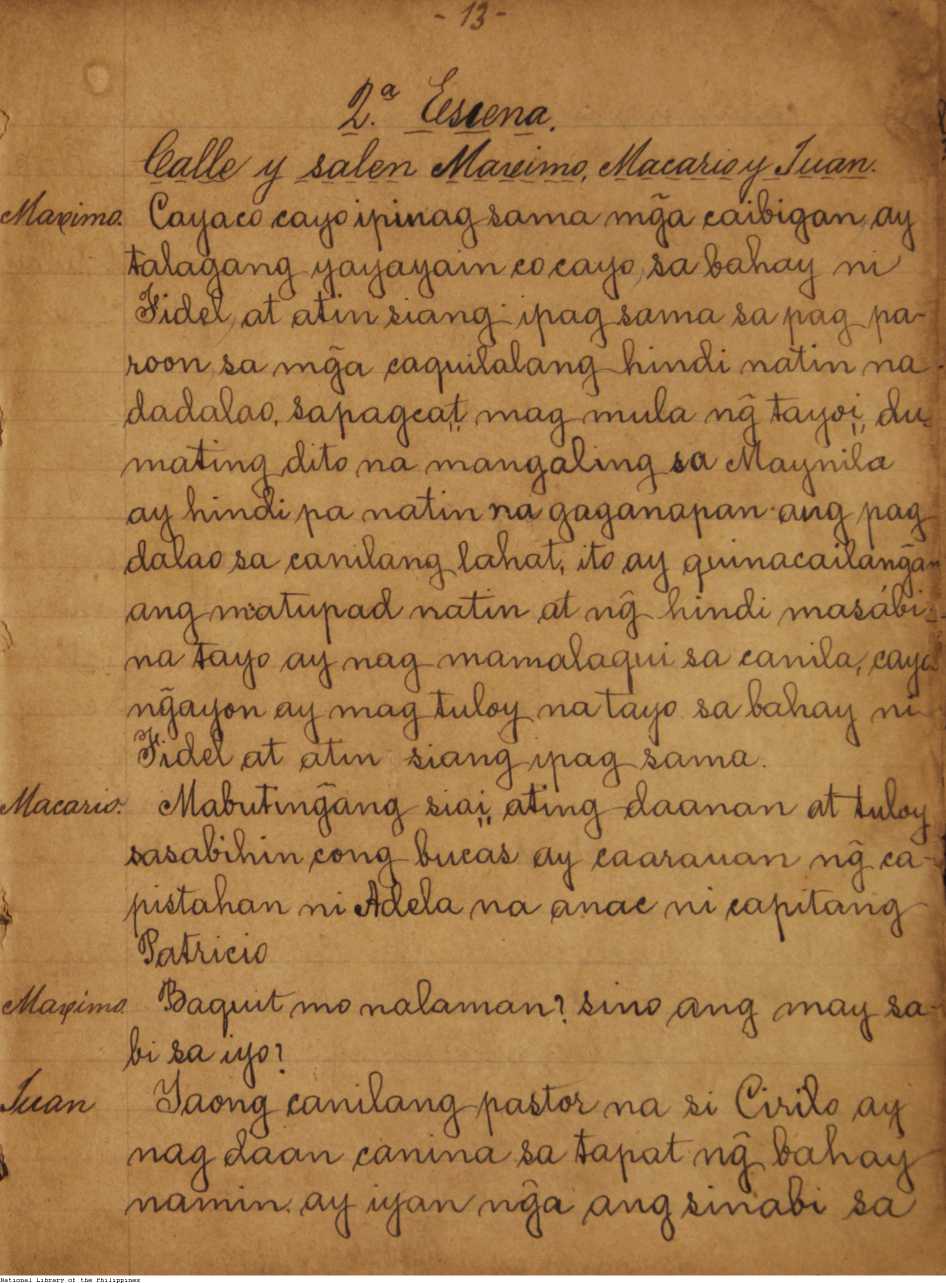 - 13 -
2.ª Escena.
Calle y salen Maximo, Macario y Juan.
Maximo. Cayaco cayo ipinag sama mg̃a caibigan, ay
talagang yayayain co cayo, sa bahay ni
Fidel, at atin siang ipag sama sa pag pa-
roon sa mg̃a caquilalang hindi natin na-
dadalao, sapagcat mag mula ng̃ tayoi, du-
mating dito na mangaling sa Maynila
ay hindi pa natin na gaganapan ang pag
dalao sa canilang lahat, ito ay quinacailang̃an
ang matupad natin at ng̃ hindi masábi
na tayo ay nag mamalaqui sa canila, caya
ng̃ayon ay mag tuloy na tayo sa bahay ni
Fidel at atin siang ipag sama.
Macario. Mabuting̃ang siai, ating daanan at tuloy
sasabihin cong bucas ay caarauan ng̃ ca-
pistahan ni Adela na anac ni capitang
Patricio
Maximo. Baquit mo nalaman? sino ang may sa-
bi sa iyo?
Juan Yaong canilang pastor na si Cirilo ay
nag daan canina sa tapat ng̃ bahay
namin. ay iyan ng̃a ang sinabi sa
National Library of the Philippines